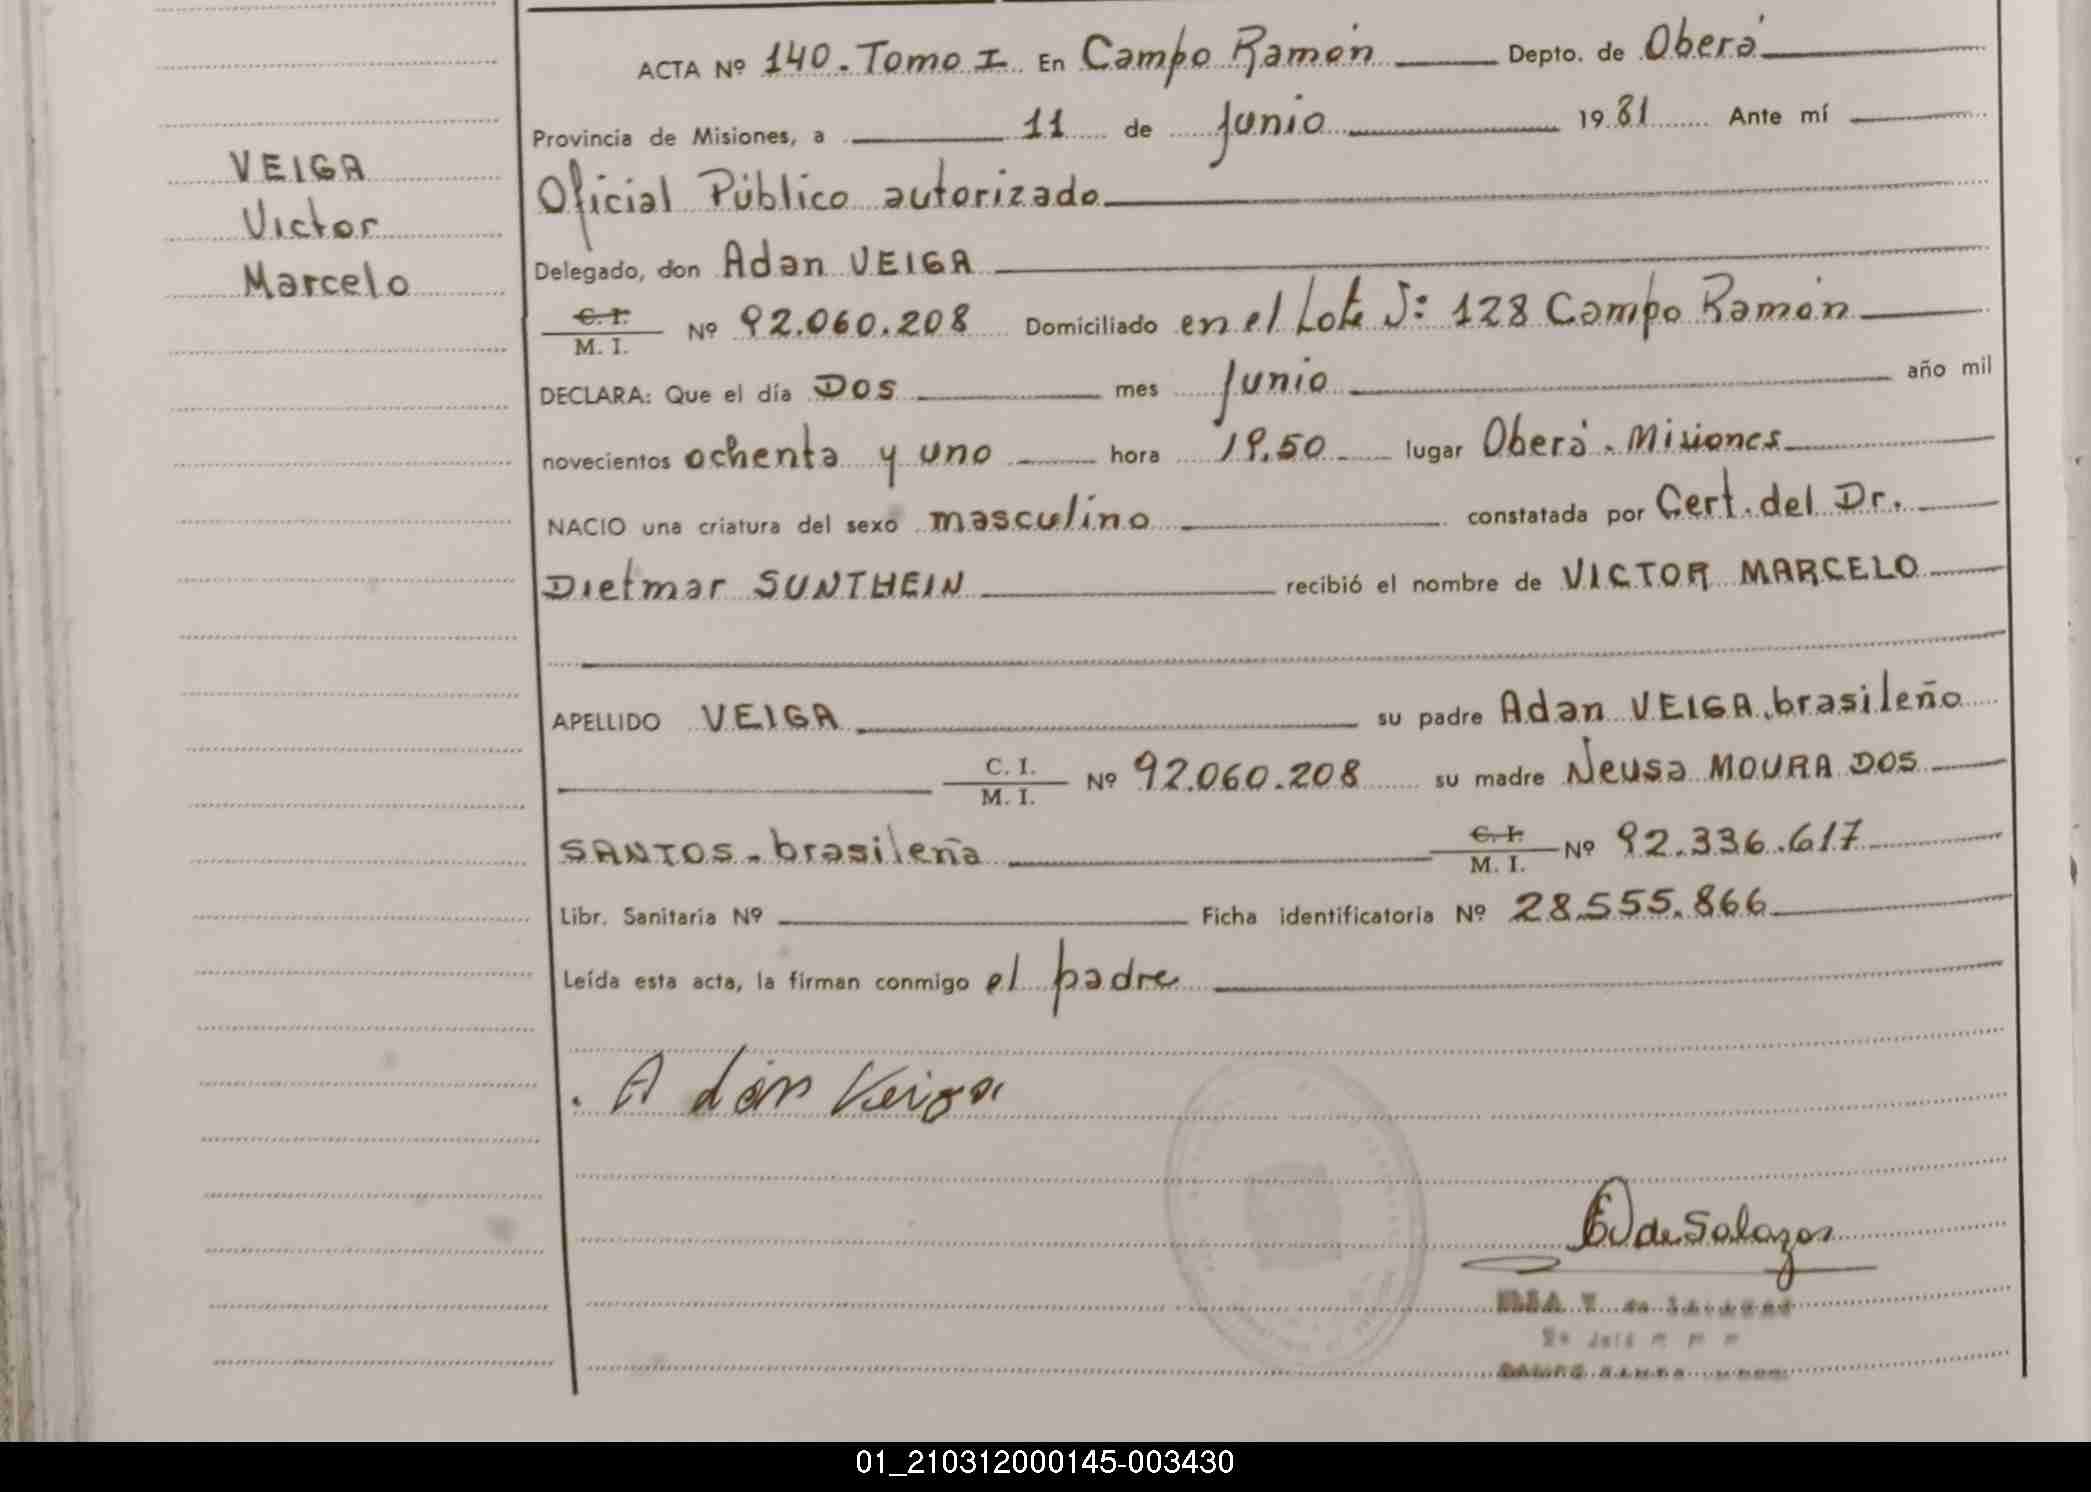 ACTA Nº 140. Tomo I En Campo Ramón Depto. de Oberá
Provincia de Misiones, a 11 de junio 1981 Ante mí
Oficial Público autorizado
Delegado, don Adan VEIGA
C. I. M. I. Nº 92.060.208 Domiciliado en el Lote J: 128 Campo Ramón
DECLARA: Que el día DOS mes junio año mil
novecientos ochenta y uno hora 19,50 lugar Oberá. Misiones
NACIO una criatura del sexo masculino constatada por Cert. del Dr.
Dietmar SUNTHEIN recibió el nombre de VICTOR MARCELO
APELLIDO VEIGA su padre Adan VEIGA, brasileño
C. I. M. I. Nº 92.060.208 su madre Neusa MOURA DOS
SANTOS. brasileña C. I. M. I. Nº 92.336.617
Libr. Sanitaria Nº Ficha identificatoria Nº 28.555.866
Leída esta acta, la firman conmigo el padre
Adán Veiga
de Salazar
VEIGA
Victor
Marcelo
01_210312000145-003430